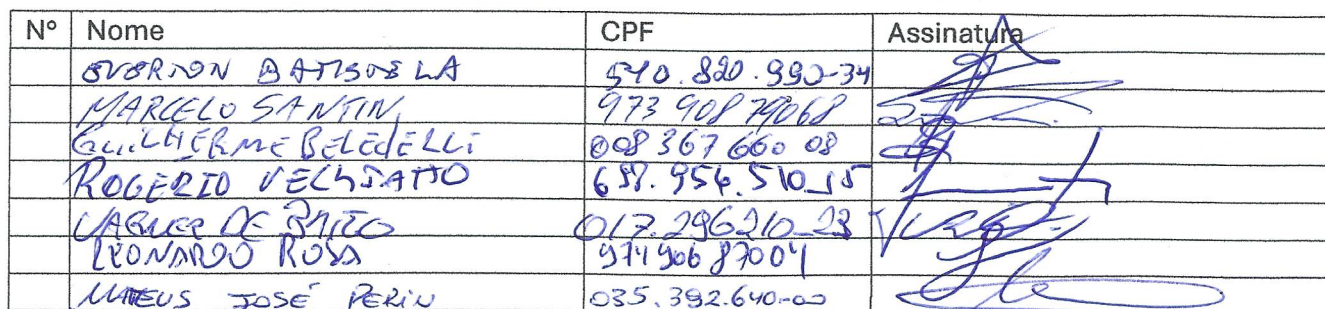 Nº Nome CPF Assinatura
EVERTON BATISTELLA 540.820.990-34
MARCELO SANTIN 973 908 79068
GUILHERME BELEDELLI 008 367 660 08
ROGERIO 658.954.510-15
VAGNER DE BRITO 017.296210-23
LEONARDO ROSA 974906 87004
MATEUS JOSÉ PERIN 035.392.640-00